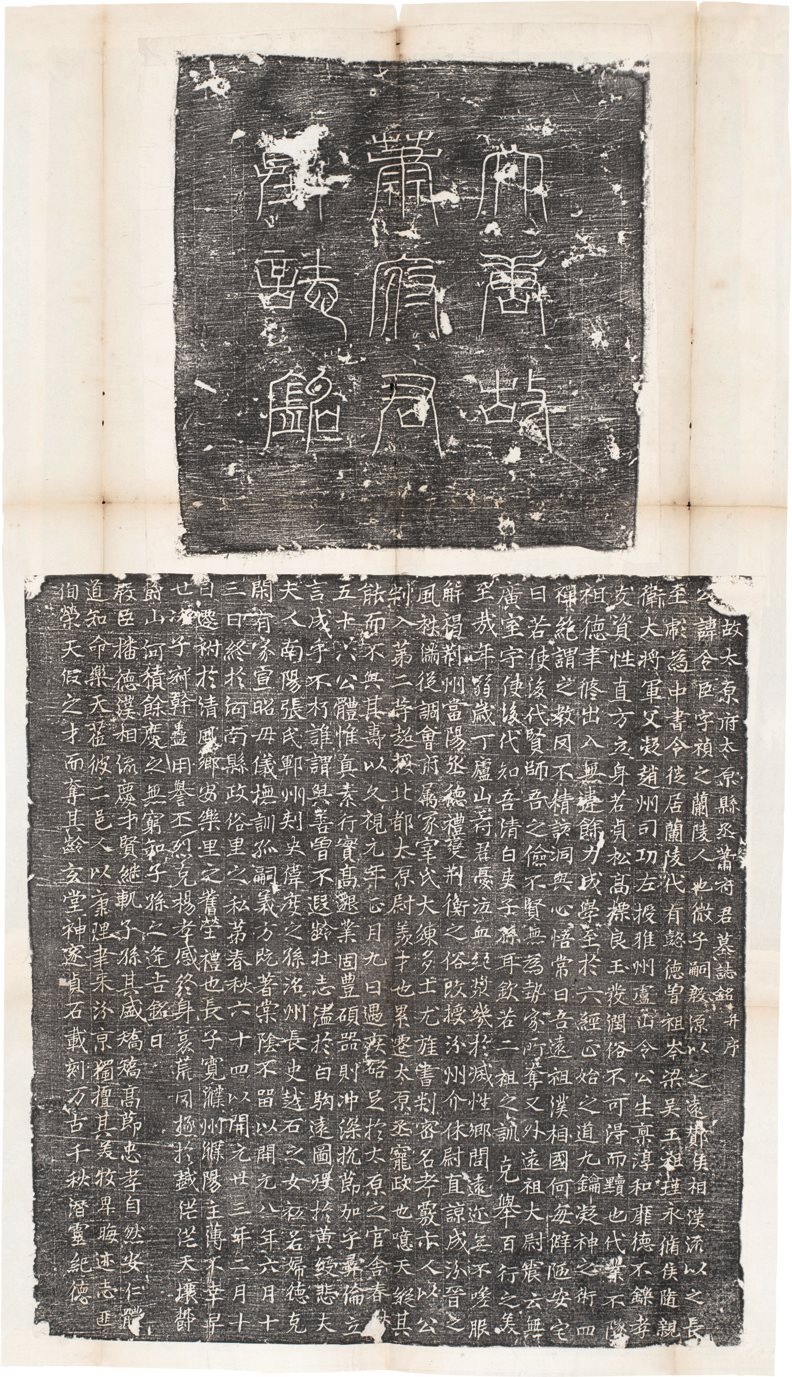 大唐故
蕭府君
墓誌銘
故太原府太原縣丞蕭府君墓誌銘并序
公諱令臣字禎之蘭陵人也微子嗣殷源以之遠酇侯相漢流以之長
至彪為中書令徙居蘭陵代有懿德曾祖岑梁吴王祖瑾永脩侯隨親
衛大將軍父凝趙州司功左授雅州盧山令公生稟淳和雅德不鑠孝
友資性直方立身若貞松高標良玉發潤俗不可得而黷也代業不墜
祖德聿脩出入無違餘力成學至於六經正始之道九鑰凝神之術四
禪絶謂之教罔不精該洞與心悟常曰吾遠祖漢相國何每僻陋安宅
曰若使後代賢師吾之儉不賢無為勢家所奪又外遠祖大尉震云無
廣室宇使後代知吾清白吏子孫耳欽若二祖之訓克舉百行之美
至哉年弱歲丁盧山府君憂泣血絶漿幾於滅性鄉閭遠迩無不嗟服
解褐荊州當陽丞德禮變荊衡之俗敗授汾州介休尉直諒成汾晉之
風秩滿從調會府屬冢宰武大練多士尤旌書判密名考覈亦人以公
判入第二等超拔北都太原尉義才也累遷太原丞寵政也噫天縱其
能而不與其壽以久視元年正月九日遇疾啓足於太原之官舍春秋
五十六公體惟真素行實高邈業固豊碩器則冲深抗節加字彝倫立
言成乎不朽誰謂與善曾不遐齡壯志溘於白駒遠圖殞於黄綬悲夫
夫人南陽張氏鄆州刾史偉度之孫洺州長史越石之女葅若婦德克
閑有家宣昭毋儀撫訓孤嗣義方既著棠陰不留以開元八年六月十
三日終於河南縣政俗里之私苐春秋六十四以開元廿三年二月十
日遷祔於清風鄉安樂里之舊塋禮也長子寬濮州濮陽主薄不幸早
世次子齊幹蠱用譽丕烈克楊孝感終身哀荒罔極於戲佳佳天壤鬱
蔚山河積餘慶之無窮知子孫之逢吉銘曰
殷臣播德漢相流慶才賢継軌子孫其盛矯矯高節忠孝自然安仁體
道知命樂天莅彼二邑人以康理聿來汾京獨擅其美牧卑晦迹志匪
侚榮天假之才而奪其齡玄堂神邃貞石載刻万古千秋潛靈紀德